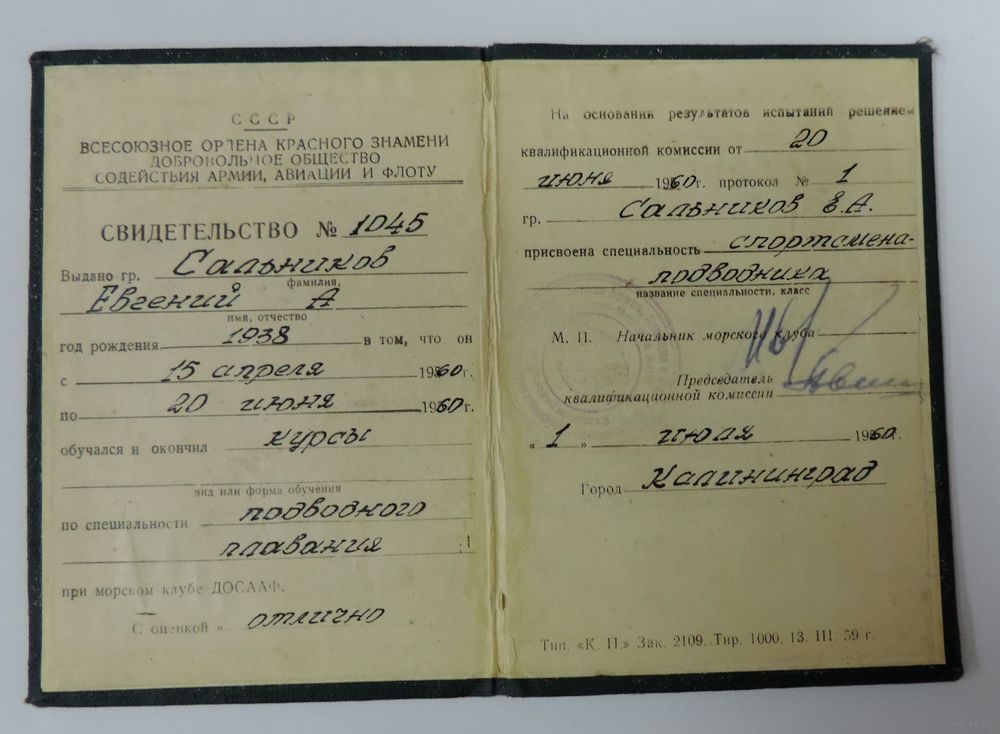 СССР
ВСЕСОЮЗНОЕ ОРДЕНА КРАСНОГО ЗНАМЕНИ
ДОБРОВОЛЬНОЕ ОБЩЕСТВО
СОДЕЙСТВИЯ АРМИИ, АВИАЦИИ И ФЛОТУ
СВИДЕТЕЛЬСТВО № 1045
Выдано гр. Сальников
фамилия,
Евгений А
имя, отчество
год рождения 1938 в том, что он
с 15 апреля 1960г.
по 20 июня 1960г.
обучался и окончил курсы
вид или форма обучения
по специальности подводного
плавания
при морском клубе ДОСААФ.
С оценкой „ отлично "
На основании результатов испытаний решением
квалификационной комиссии от 20
июня 1960г. протокол № 1
гр. Сальников Е.А.
присвоена специальность спортсмена-
подводника
название специальности, класс
М. П. Начальник морского клуба
Председатель
квалификационной комиссии
„ 1 " июля 1960г.
Город Калининград
Тип. «К. П.» Зак. 2109. Тир. 1000. 13. III. 59 г.